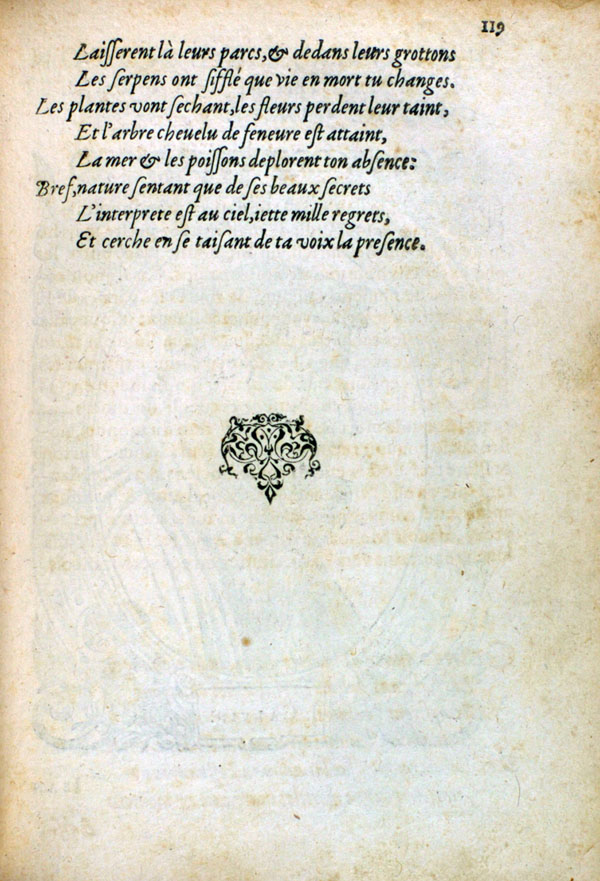 119
Laisserent là leurs parcs, & dedans leurs grottons
Les serpens ont sifflé que vie en mort tu changes.
Les plantes vont sechant, les fleurs perdent leur taint,
Et l'arbre cheuelu de feneure est attaint,
La mer & les poissons deplorent ton absence:
Bref, nature sentant que de ses beaux secrets
L'interprete est au ciel, iette mille regrets,
Et cerche en se taisant de ta voix la presence.